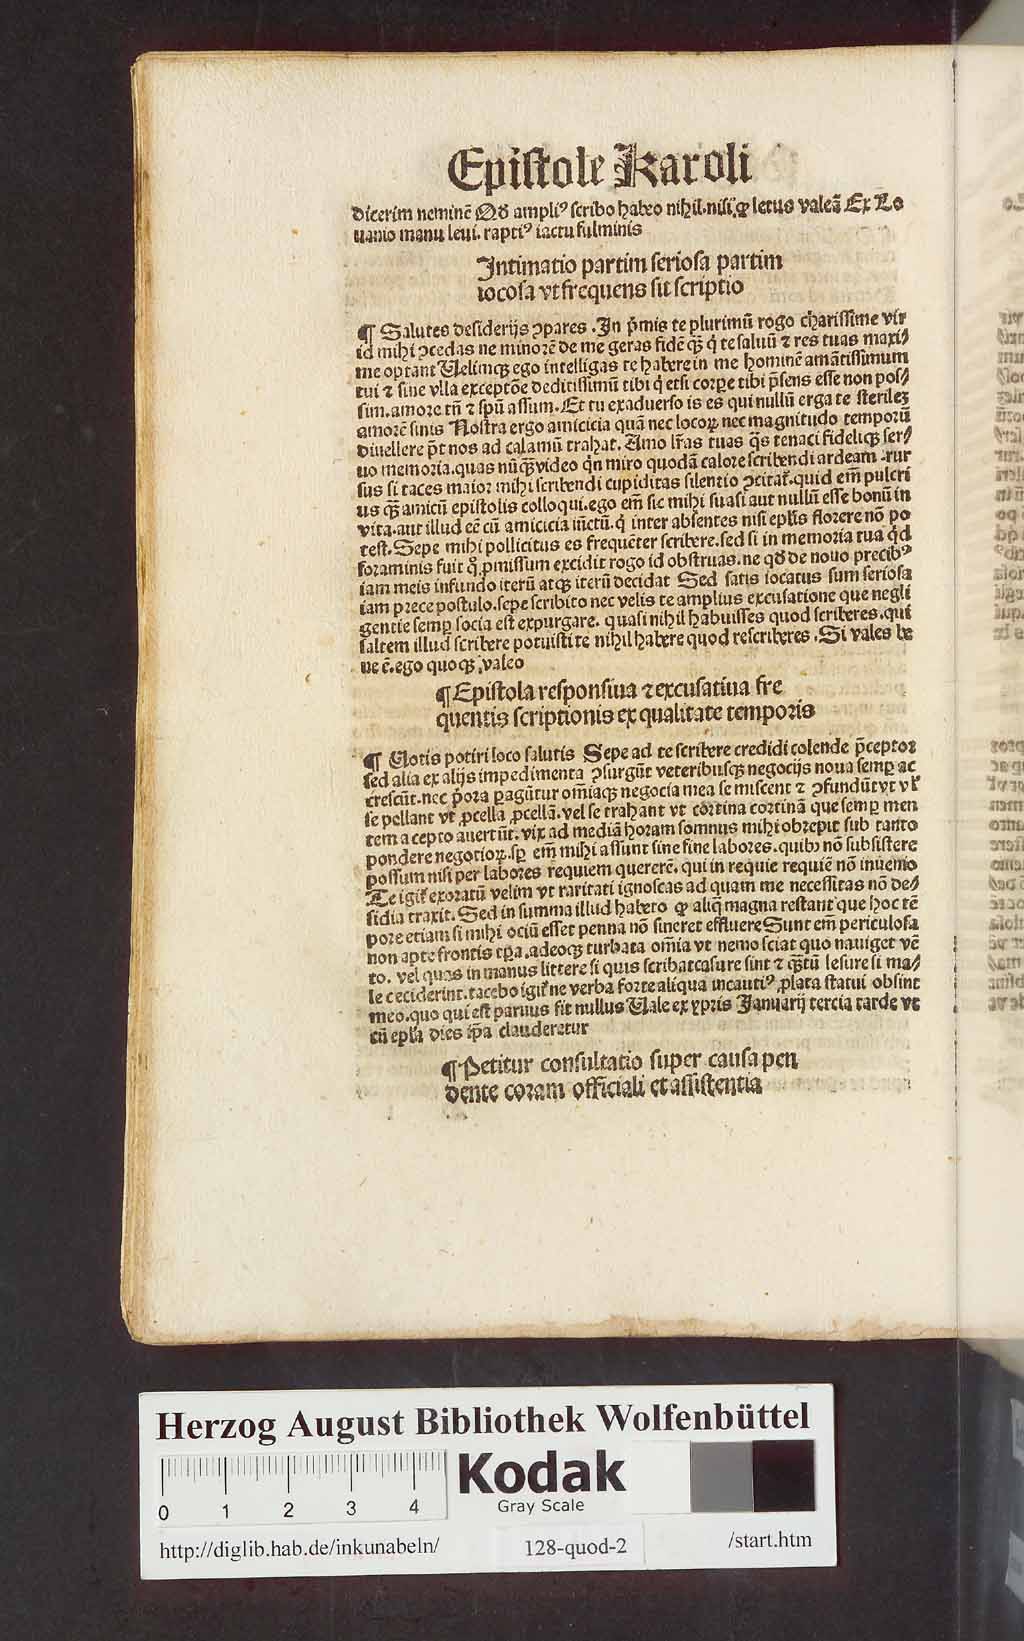 Epistole Karoli
dicerim neminē Qđ ampliꝰ scribo habeo nihil.nisi ꝙ letus valeā Ex Lo
uanio manu leui. raptiꝰ iactu fulminis
Intimatio partim seriosa partim
iocosa vt frequens sit scriptio
¶ Salutes desiderijs ꝯpares .In p̄mis te plurimū rogo charissime vir
id mihi ꝯcedas ne minorē de me geras fidē qꝫ q̇ te saluū ⁊ res tuas maxi/
me optant Uelimqꝫ ego intelligas te habere in me hominē amātissimum
tui ⁊ sine vlla exceptōe deditissimū tibi q̇ etsi corꝑe tibi p̄sens esse non pos/
sim.amore tn̄ ⁊ spū assum. Et tu exaduerso is es qui nullū erga te sterileꝫ
amorē sinis Nostra ergo amicicia quā nec locoꝝ nec magnitudo temporū
diuellere pōt nos ad calamū trahat. Amo lr̄as tuas q̄s tenaci fideliqꝫ ser/
uo memoria.quas nūqꝫ video qn̄ miro quodā calore scribendi ardeam .rur
sus si taces maior mihi scribendi cupiditas silentio ꝯcitat᷑.quid em̄ pulcri
us qꝫ amicū epistolis colloqui.ego em̄ sic mihi suasi aut nullū esse bonū in
vita.aut illud eē cū amicicia iūctū.q̇ inter absentes nisi epl̄is florere nō po
test. Sepe mihi pollicitus es frequēter scribere.sed si in memoria tua q̇d
foraminis fuit q̇ ꝓmissum excidit rogo id obstruas.ne qđ de nouo precibꝰ
iam meis infundo iterū atqꝫ iterū decidat Sed satis iocatus sum seriosa
iam prece postulo.sepe scribito nec velis te amplius excusatione que negli
gentie semꝑ socia est expurgare. quasi nihil habuisses quod scriberes.qui
saltem illud scribere potuisti te nihil habere quod rescriberes .Si vales be
ne ē.ego quoqꝫ valeo
¶ Epistola responsiua ⁊ excusatiua fre
quentis scriptionis ex qualitate temporis
¶ Uotis potiri loco salutis Sepe ad te scribere credidi colende p̄ceptor
sed alia ex alijs impedimenta ꝯsurgūt veteribusqꝫ negocijs noua semꝑ ac
crescūt.nec p̄ora ꝑagūtur om̄iaqꝫ negocia mea se miscent ⁊ ꝯfundūt vt vł
se pellant vt ꝓcella ꝓcellā.vel se trahant vt cortina cortinā que semꝑ men
tem a cepto auertūt. vix ad mediā horam somnus mihi obrepit sub tanto
pondere negotioꝝ.sꝑ em̄ mihi assunt sine fine labores.quibꝫ nō subsistere
possum nisi per labores requiem quererē. qui in requie requiē nō inuenio
Te igit᷑ exoratū velim vt raritati ignoscas ad quam me necessitas nō de/
sidia traxit. Sed in summa illud habeto ꝙ aliq̄ magna restant que hoc tē
pore etiam si mihi ociū esset penna nō sineret effluere Sunt em̄ periculosa
non aꝑte frontis tp̄a.adeoqꝫ turbata om̄ia vt nemo sciat quo nauiget vē
to. vel quas in manus littere si quis scribat casure sint ⁊ qꝫtū lesure si ma/
le ceciderint.tacebo igit᷑ ne verba forte aliqua incautiꝰ ꝓlata statui obsint
meo.quo qui est paruus fit nullus Uale ex ypris Januarij tercia tarde vt
cū epl̄a dies ip̄a clauderetur
¶ Petitur consultatio super causa pen
dente coram officiali et assistentia
Herzog August Bibliothek Wolfenbüttel
0 1 2 3 4
Kodak
Gray Scale
http://diglib.hab.de/inkunabeln/ 128-quod-2 /start.htm